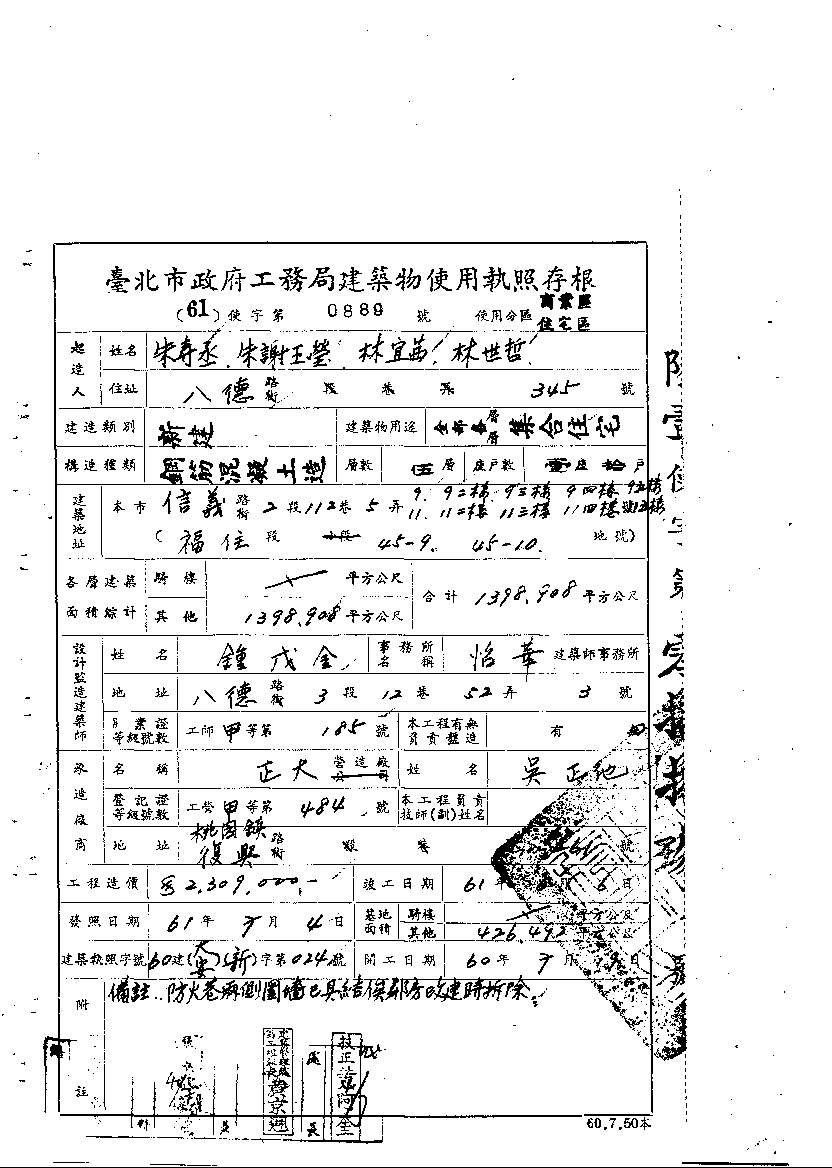 臺北市政府工務局建築物使用執照存根
(61)使字第 0889 號 使用分區 商業區 住宅區
起造人 姓名 朱壽丞 朱謝玉瑩 林宜茜 林世哲
住址 八德路街 段 巷 弄 345 號
建造類別 新建 建築物用途 集合住宅
構造種類 鋼筋混凝土造 層數 層 座戶數 座 戶
建築地址 本市 信義路街 2段112巷5弄 9. 9二樓 9三樓 9四樓 9五樓
11. 11二樓 11三樓 11四樓 11五樓
(福住段 小段 45-9. 45-10. 地號)
各層建築面積綜計 騎樓 平方公尺 合計 1398.908 平方公尺
其他 1398.908 平方公尺
設計監造建築師 姓名 鍾茂金 事務所名稱 怡華 建築師事務所
地址 八德路街 3段 12巷 52弄 3號
開業證等級號數 工師甲等第 185 號 本工程有無負責監造 有
承造廠商 名稱 正大 營造廠公司 姓名 吳正地
登記證等級號數 工營甲等第 484 號 本工程負責技師(副)姓名
地址 桃園鎮復興路街 號
工程造價 2,309,000.- 竣工日期 61年 月6日
發照日期 61年 月4日 基地面積 騎樓 平方公尺
其他 426.492 平方公尺
建築執照字號 60建(大安)(新)字第024號 開工日期 60年 月 日
附註 備註..防火巷兩側圍牆已具結俟鄰房改建時拆除。
60.7.50本